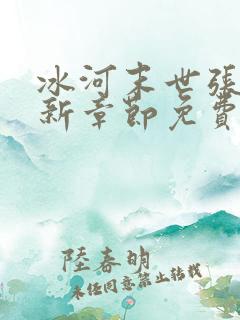 冰河末世張
新章節免費
陸春明
未經同意禁止轉載